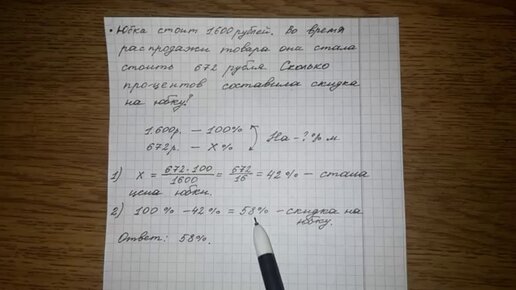 • Юбка стоит 1600 рублей. Во время
распродажи товара она стала
стоить 672 рубля. Сколько
процентов составила скидка
на юбку?
1.600р. – 100%
672р. – x%
На - ? % м
1) x = 672·100 / 1600 = 672 / 16 = 42% – стала
цена юбки.
2) 100% – 42% = 58% – скидка на
юбку.
Ответ: 58%.